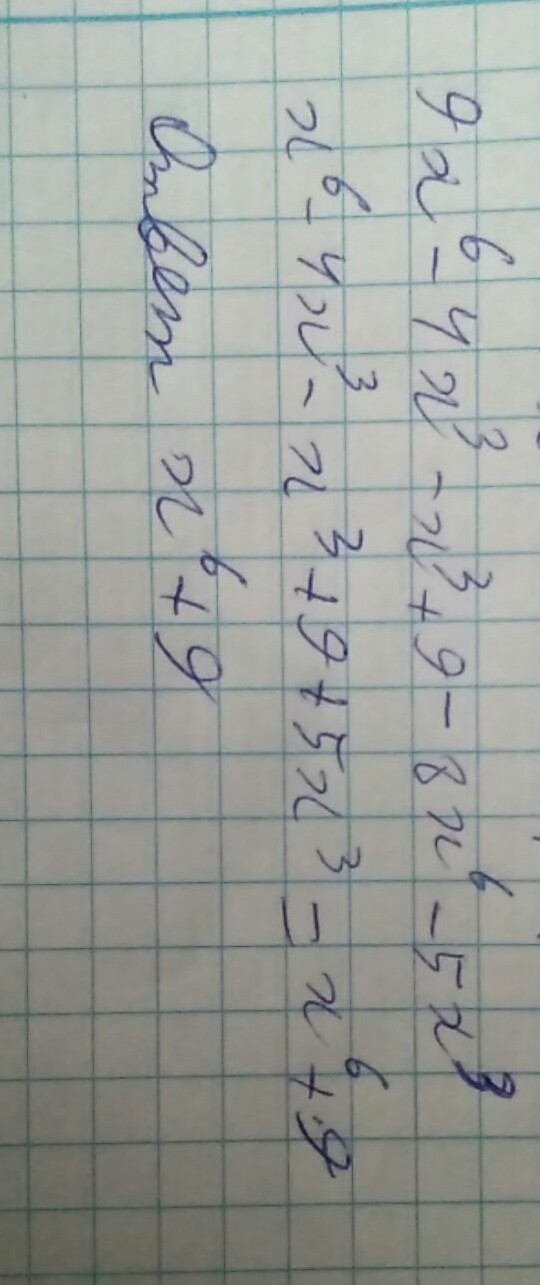 9x⁶ - 4x³ - x³ + 9 - 8x⁶ - 5x³
x⁶ - 4x³ - x³ + 9 + 5x³ = x⁶ + 9
Ответ x⁶ + 9